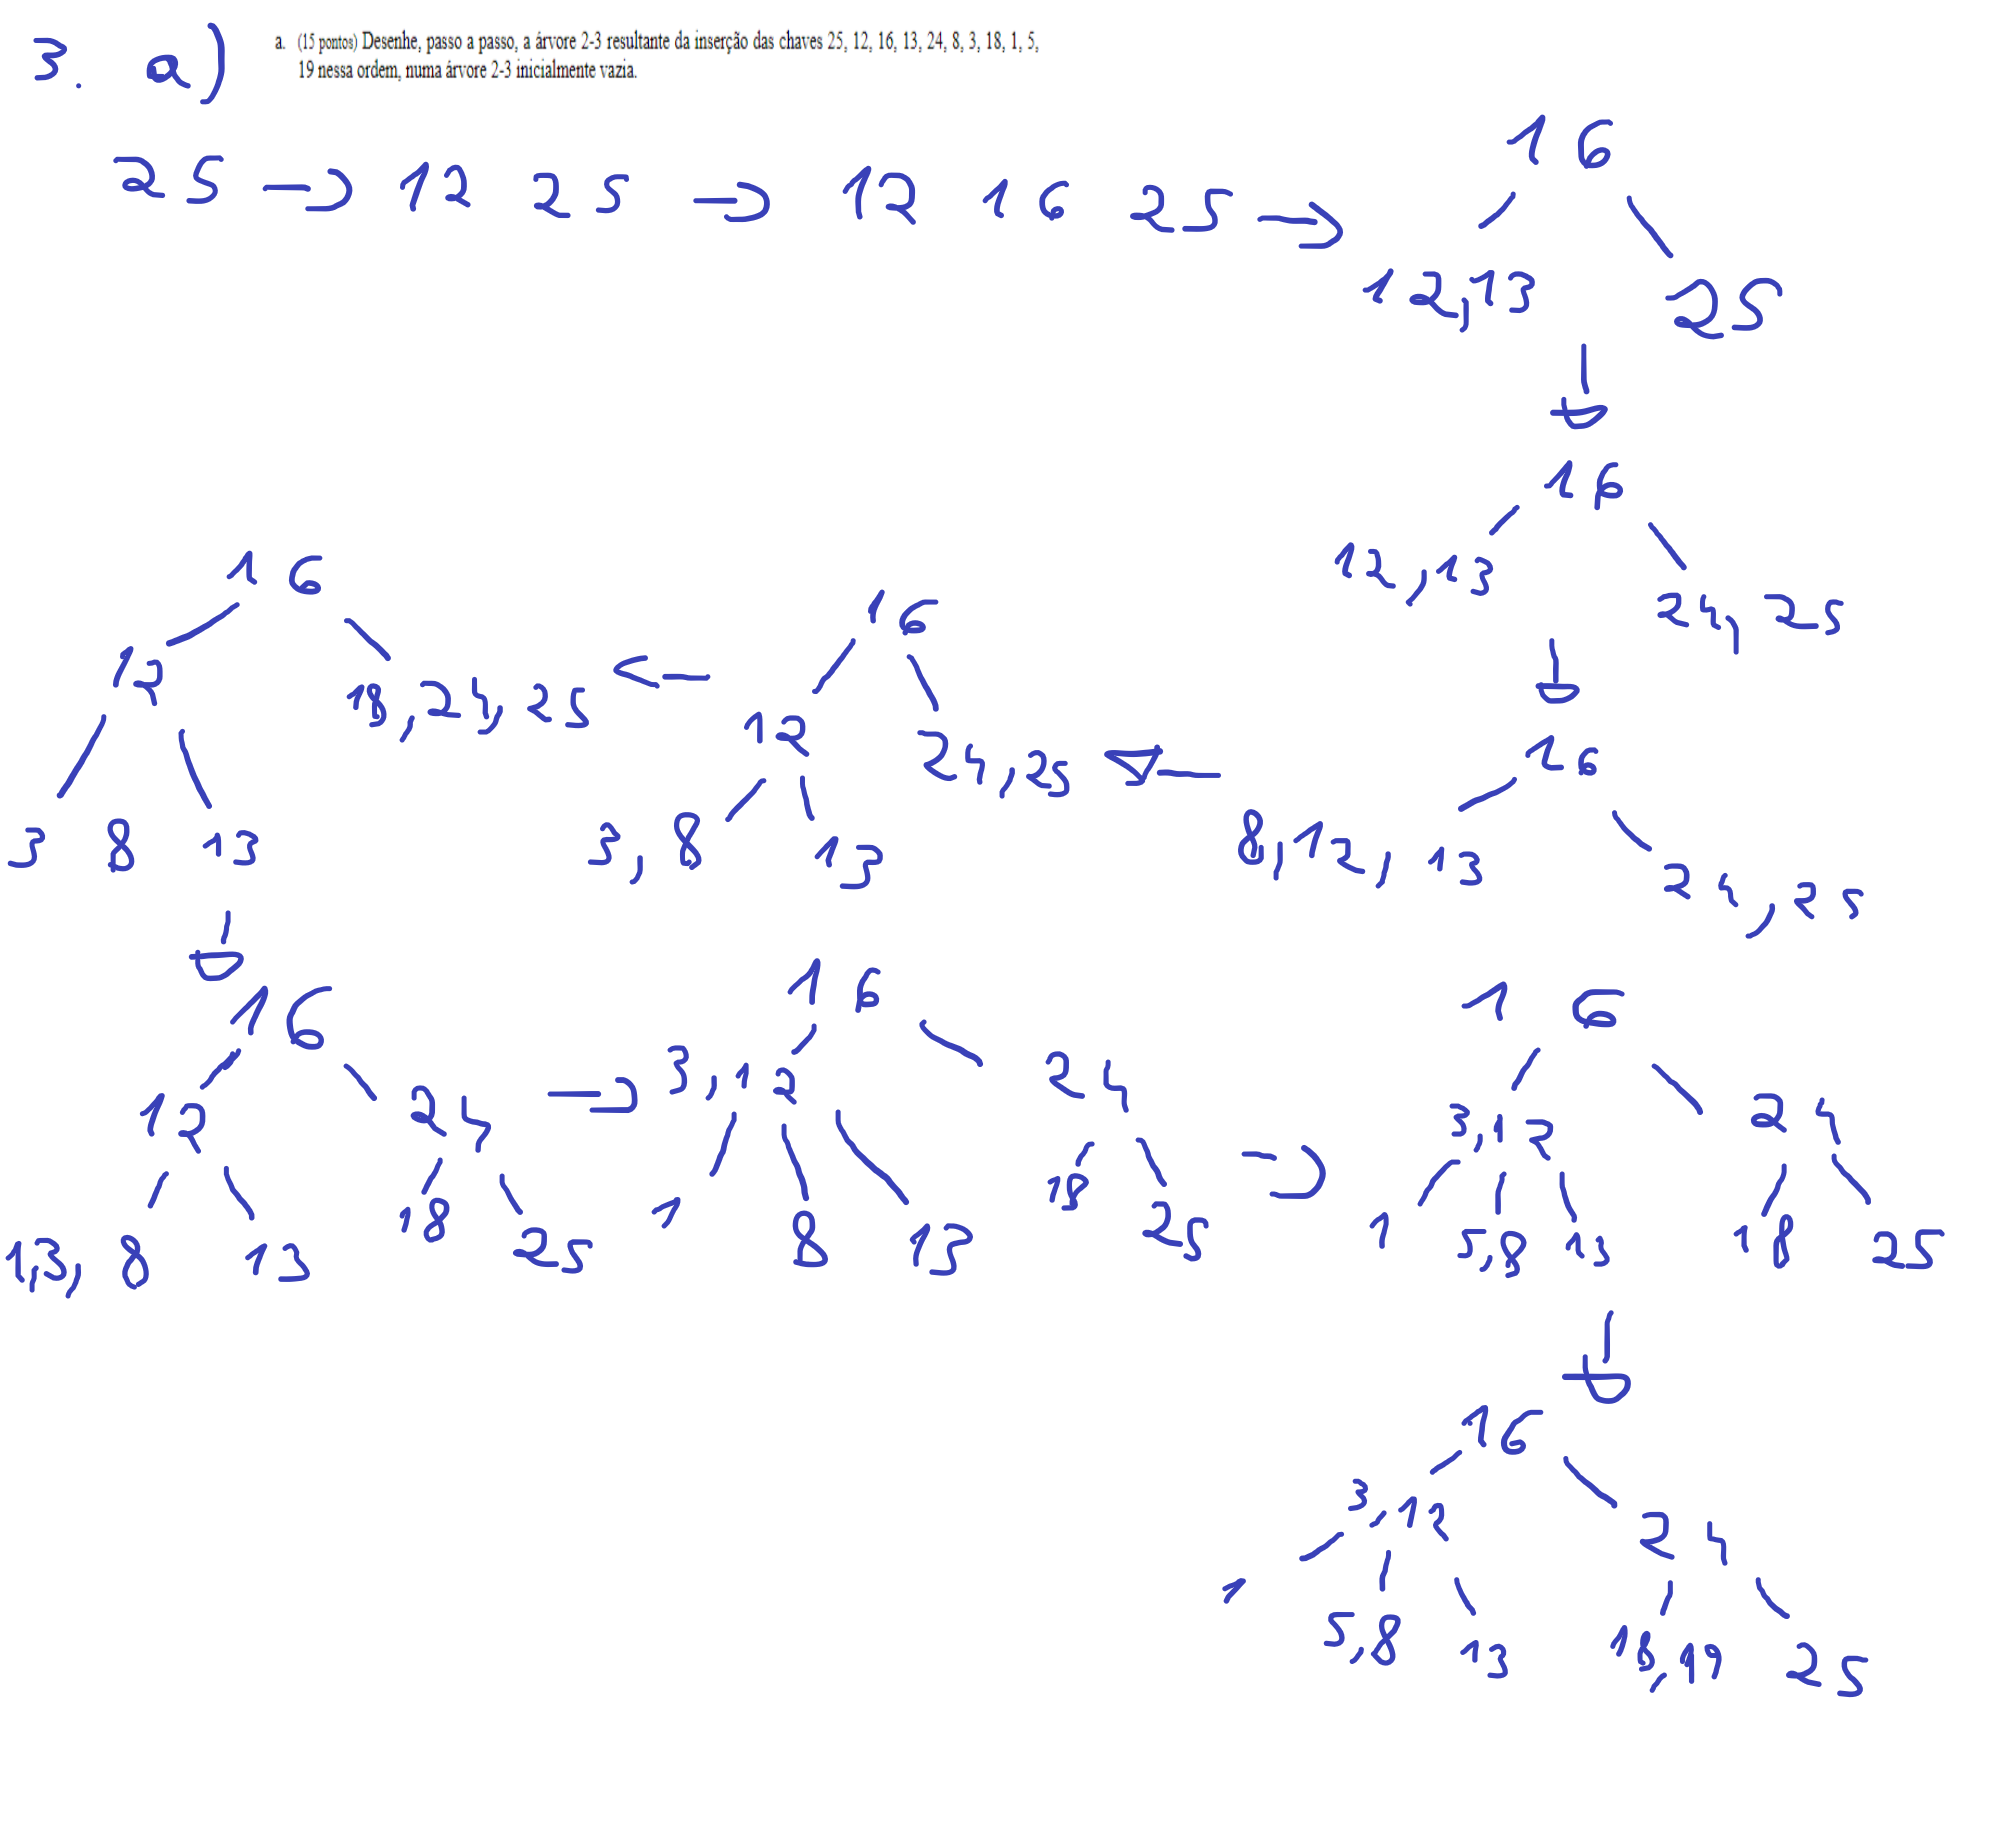 3. a)
a. (15 pontos) Desenhe, passo a passo, a árvore 2-3 resultante da inserção das chaves 25, 12, 16, 13, 24, 8, 3, 18, 1, 5,
19 nessa ordem, numa árvore 2-3 inicialmente vazia.
25 → 12 25 → 12 16 25 →
16
12,13 25
16
12,13 24, 25
16
8,12, 13 24, 25
16
12 24,25
3, 8 13
16
12 18,24,25
3 8 13
16
12 24
13, 8 13 18 25
→
16
3,12 24
1 8 13 18 25
→
16
3,12 24
1 5,8 13 18 25
16
3,12 24
1 5,8 13 18,19 25